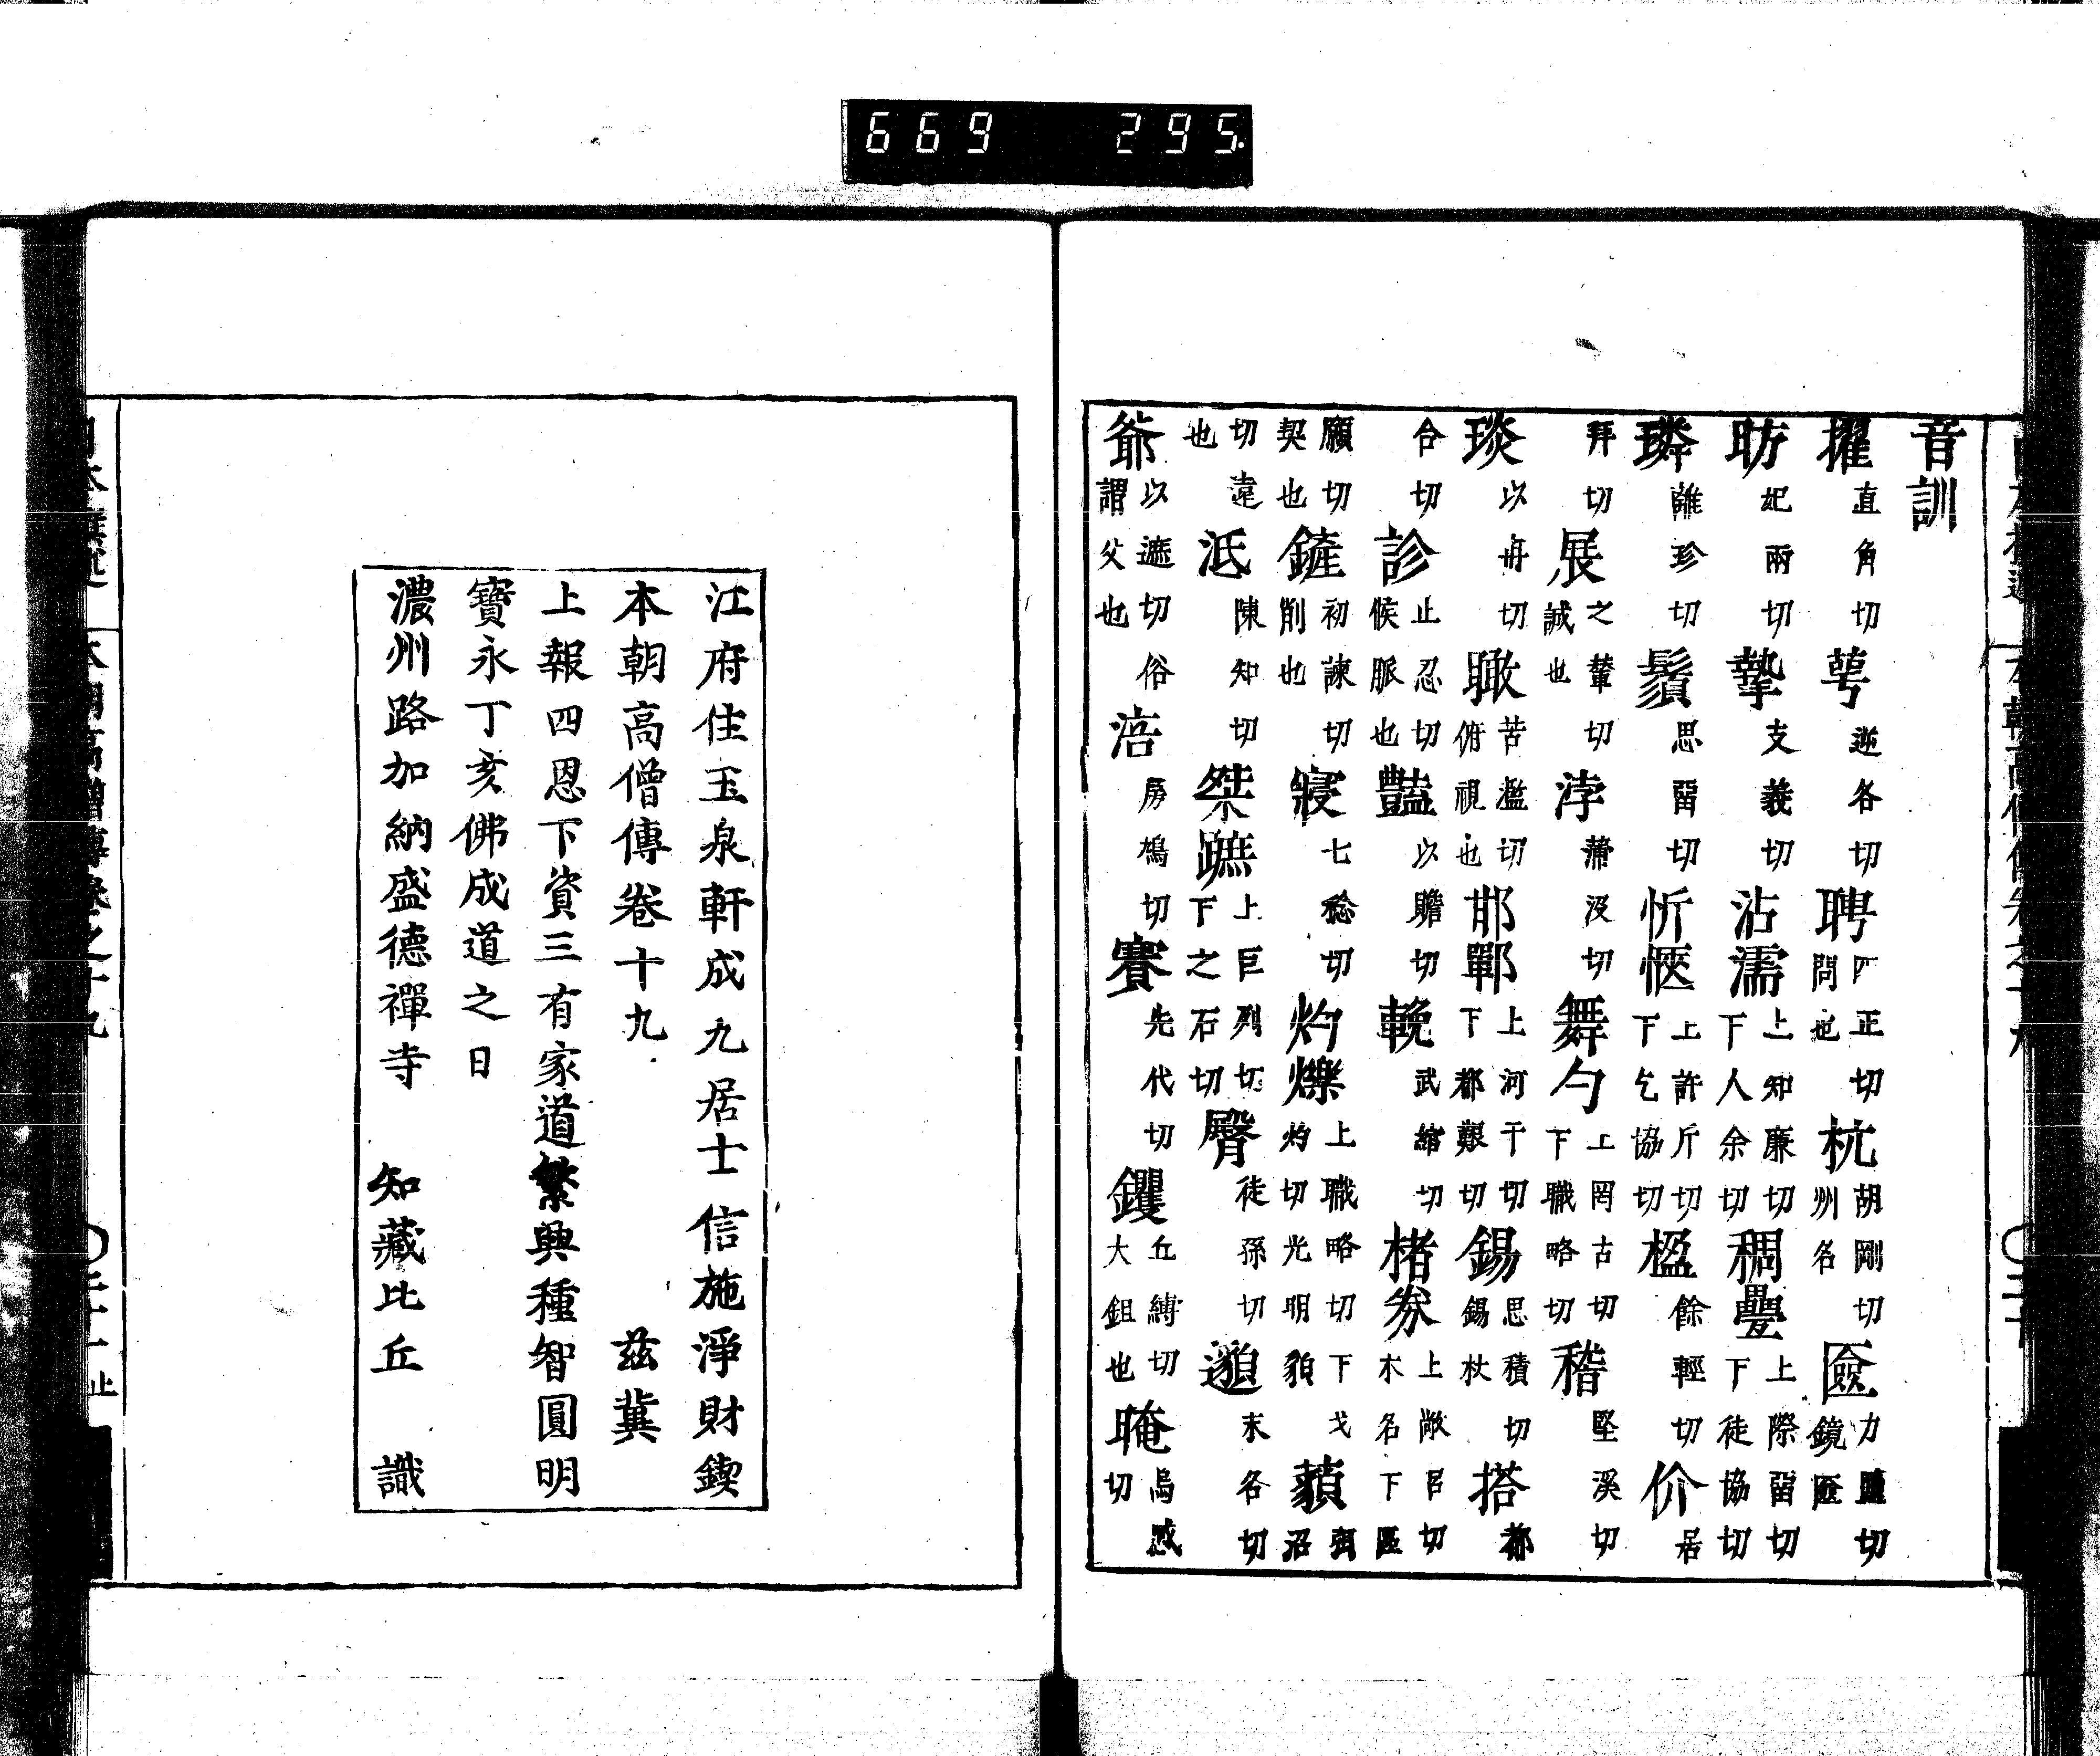 669 295
音訓
擢直角切萼逆各切聘匹正切問也杭胡剛切州名匳力鹽切鏡匳
昉妃兩切摯支義切沾濡上知廉切下人余切稠疊上際留切下徒協切
璘離珍切鬚思留切忻愜上許斤切下乞協切楹餘輕切价居
拜切展之輦切誠也浡蒲沒切舞勺上罔古切下職略切稽堅溪切
琰以冉切瞰苦濫切俯視也邯鄲上河干切下都艱切錫思積切錫杖搭都
合切診止忍切候脈也豔以贍切輓武綰切楮劵上敞呂切木名下區
願切契也鏟初諫切削也寢七稔切灼爍上職略切灼切光明貌下弋藾弼沼
切違也泜陳知切桀蹠上巨列切下之石切臀徒孫切邈末各切
爺以遮切俗謂父也涪房鳩切賽先代切钁丘縛切大鉏也晻烏感切
江府住玉泉軒成九居士信施淨財鍥
本朝高僧傳卷十九 茲冀
上報四恩下資三有家道繁興種智圓明
寶永丁亥佛成道之日
濃州路加納盛德禪寺 知藏比丘 識